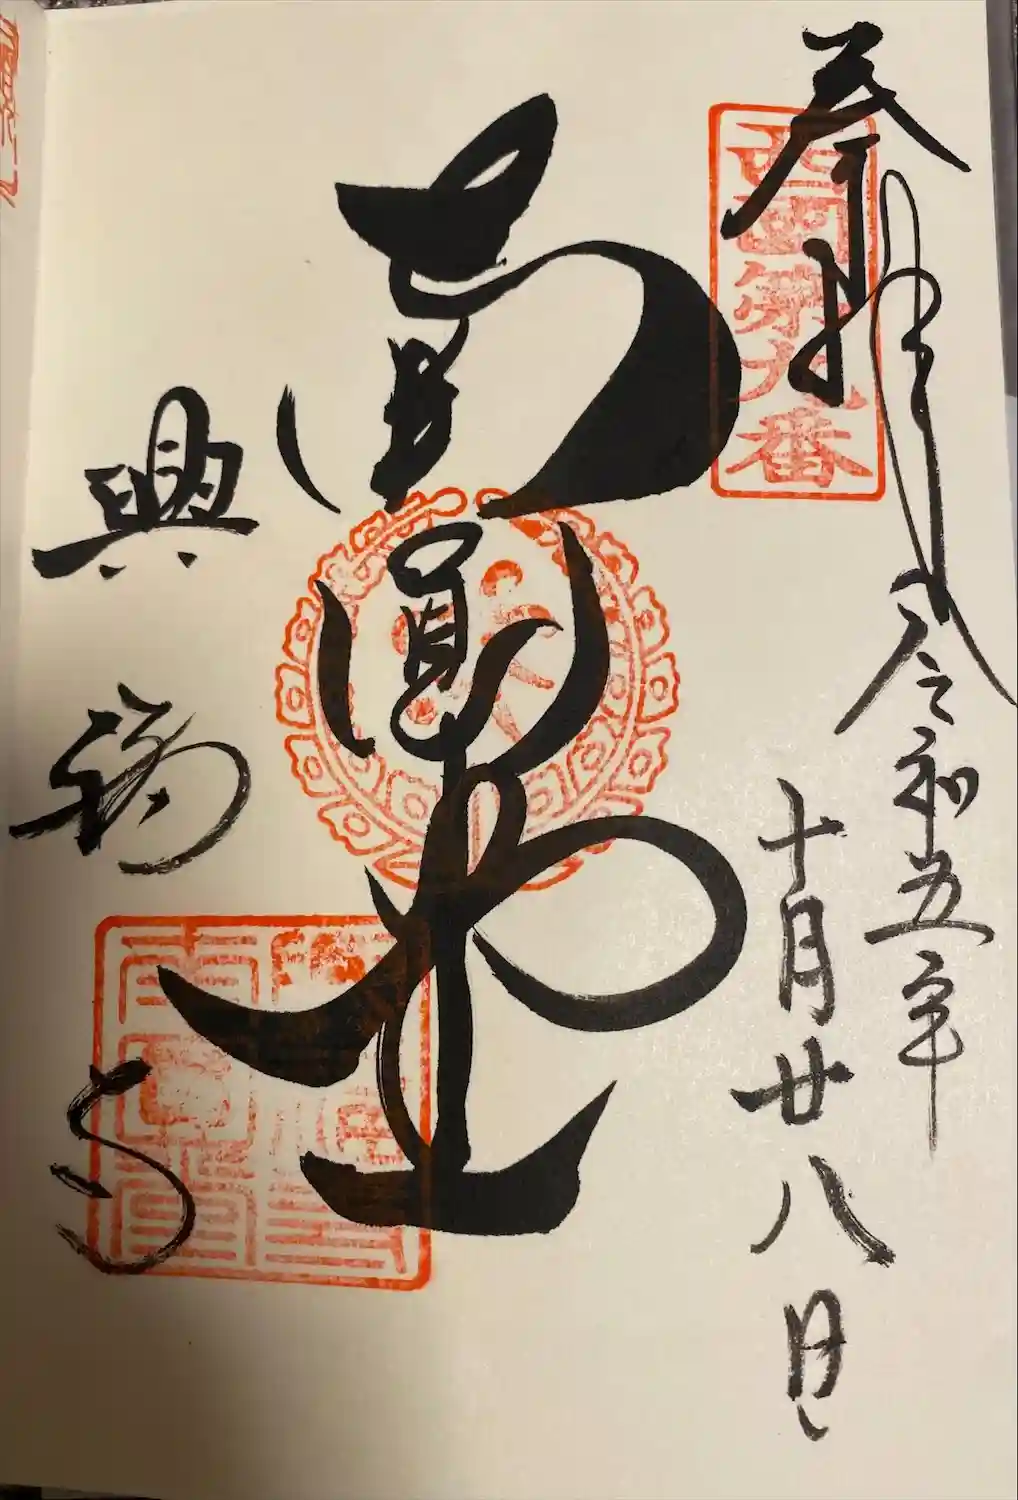 奉拝
令和五年
十月廿八日
西国第九番
南圓堂
興福寺